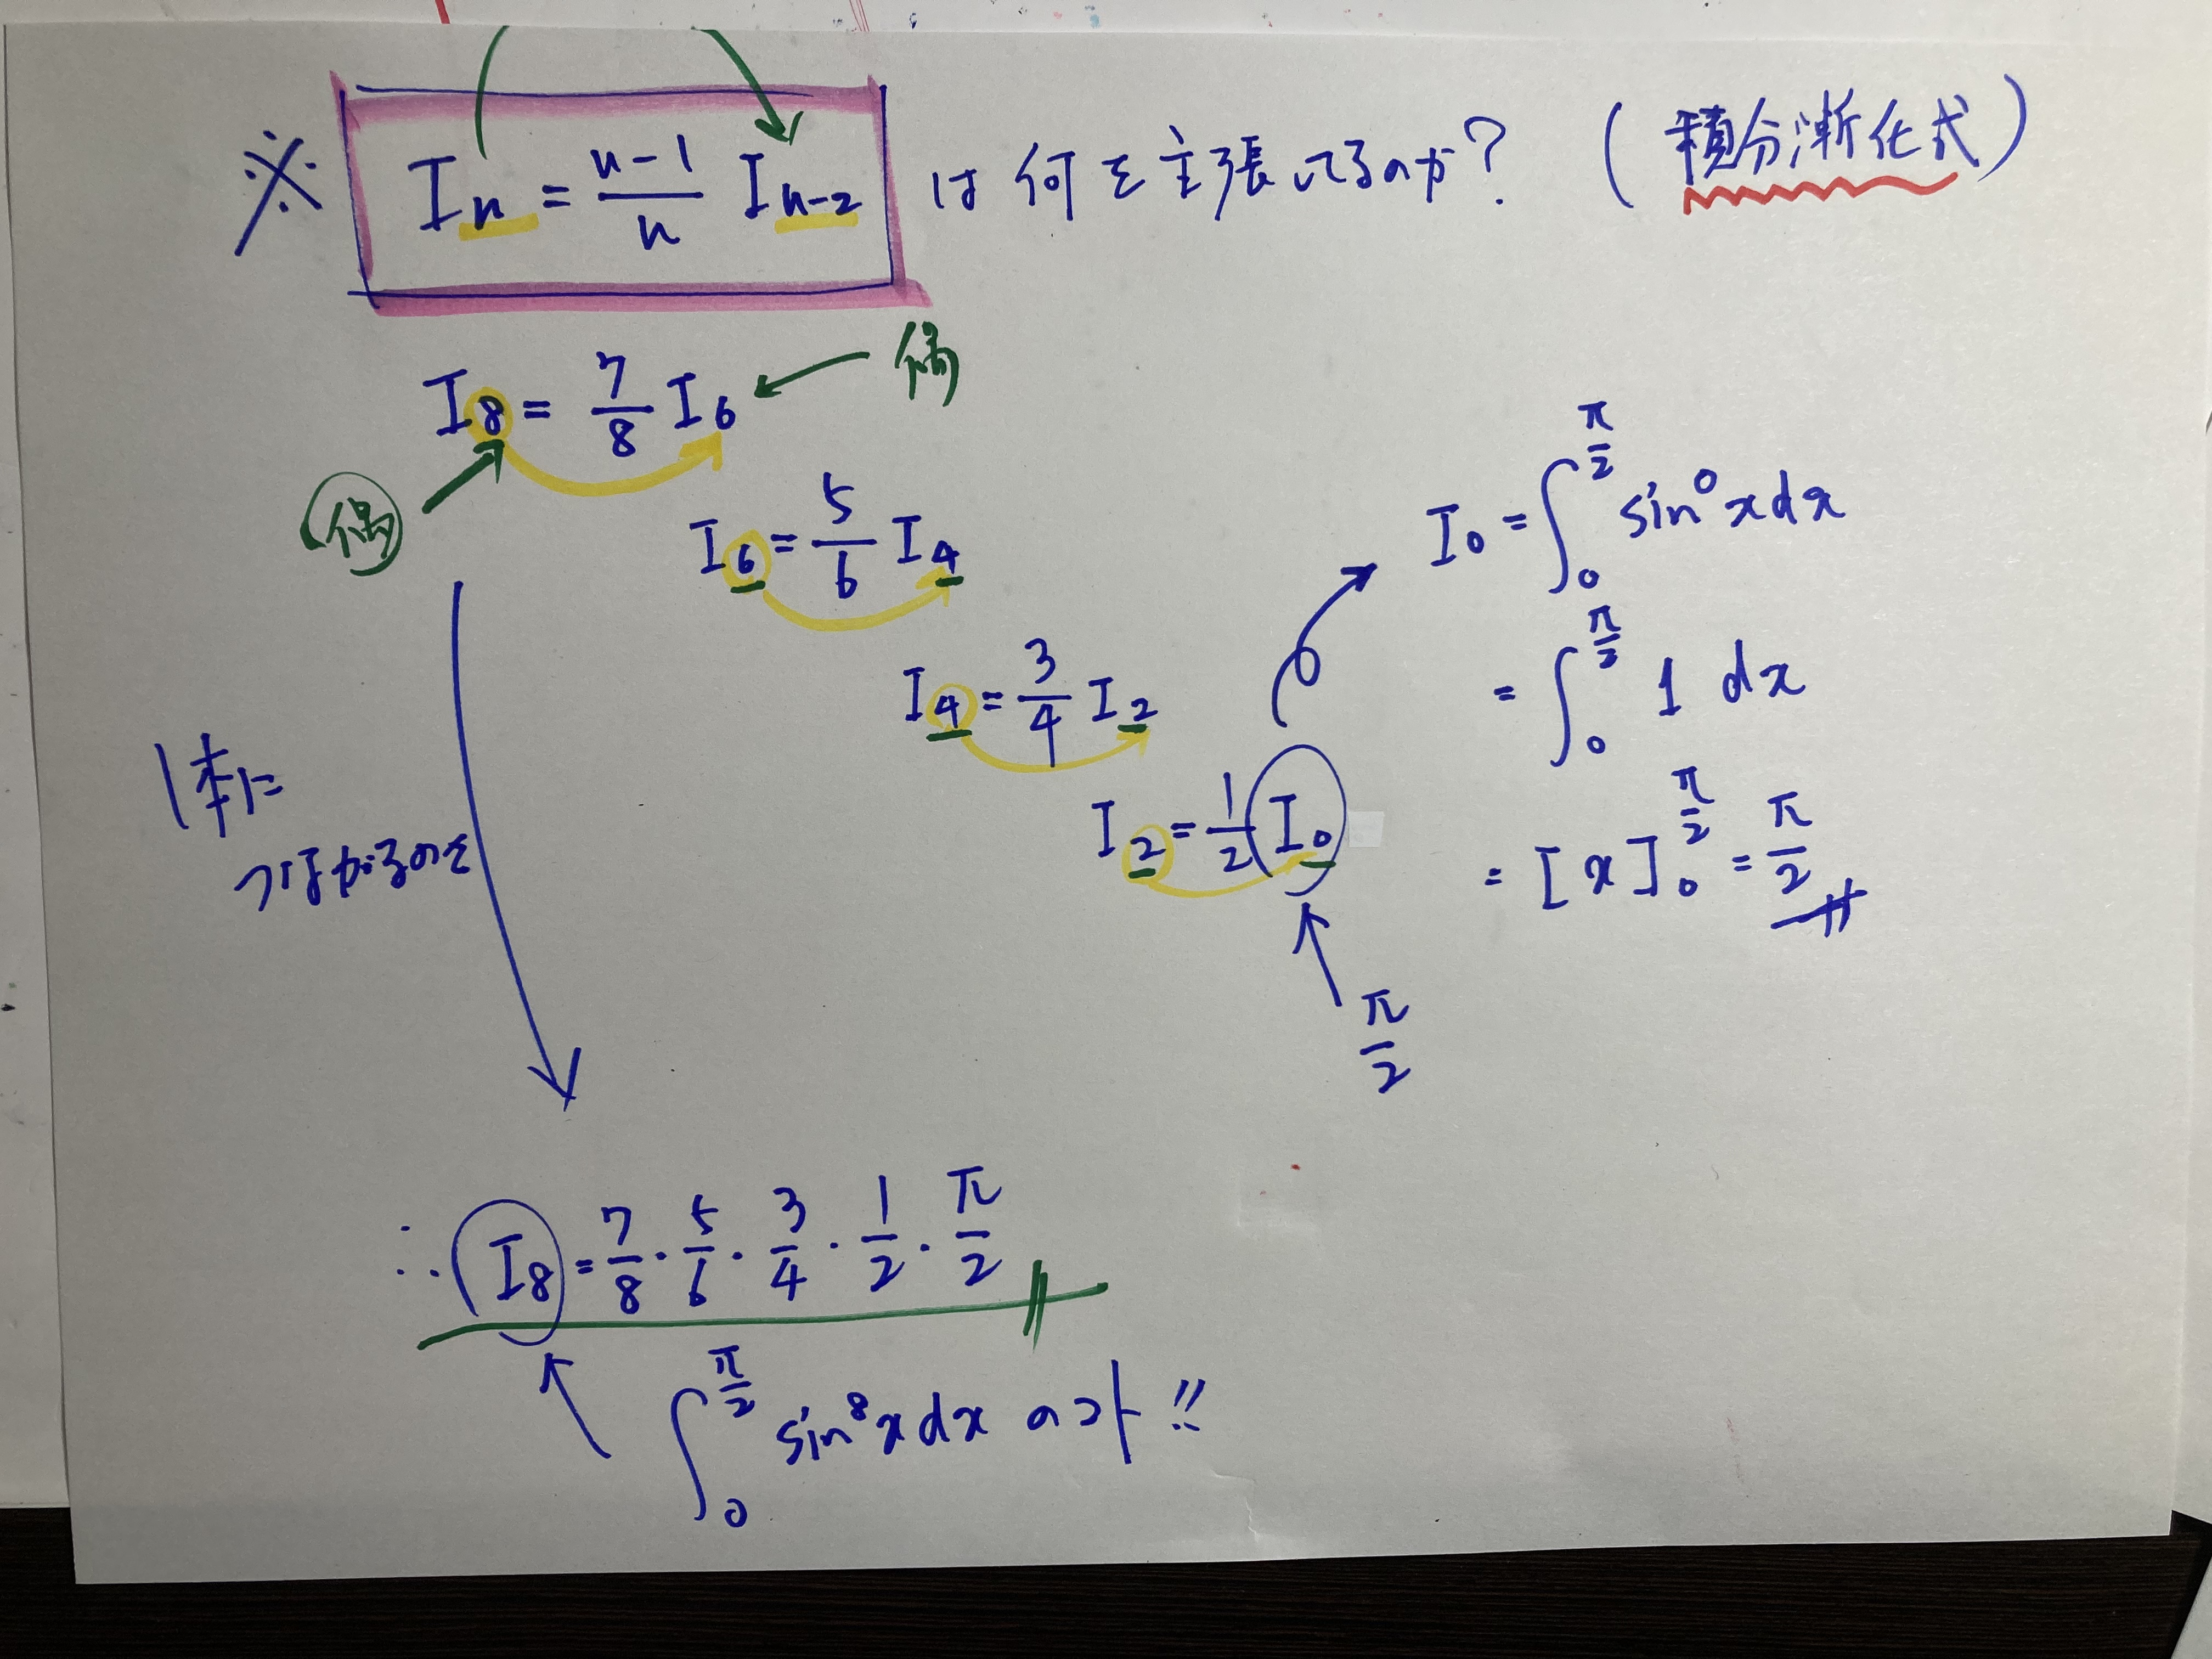 ※ Iₙ = (n-1)/n Iₙ₋₂ は何を主張してるのか? (積分漸化式)
I₈ = 7/8 I₆ ← 偶
偶
I₆ = 5/6 I₄
I₄ = 3/4 I₂
I₂ = 1/2 I₀
π/2
I₀ = ∫₀^(π/2) sin⁰x dx
= ∫₀^(π/2) 1 dx
= [x]₀^(π/2) = π/2
1本に
つながるのを
∴ I₈ = 7/8 · 5/6 · 3/4 · 1/2 · π/2
∫₀^(π/2) sin⁸x dx のコト!!